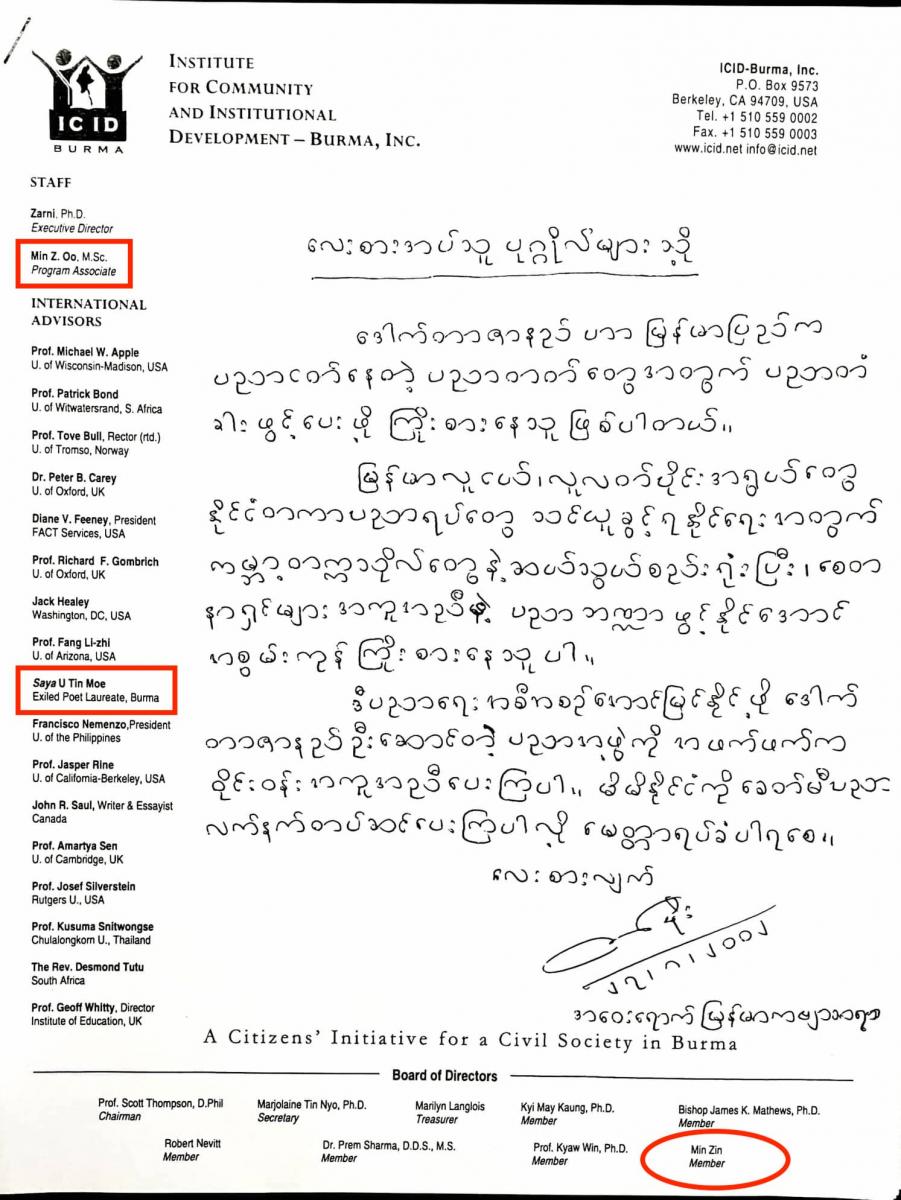 INSTITUTE
FOR COMMUNITY
AND INSTITUTIONAL
DEVELOPMENT – BURMA, INC.
ICID
BURMA
ICID-Burma, Inc.
P.O. Box 9573
Berkeley, CA 94709, USA
Tel. +1 510 559 0002
Fax. +1 510 559 0003
www.icid.net info@icid.net
STAFF
Zarni, Ph.D.
Executive Director
Min Z. Oo, M.Sc.
Program Associate
INTERNATIONAL
ADVISORS
Prof. Michael W. Apple
U. of Wisconsin-Madison, USA
Prof. Patrick Bond
U. of Witwatersrand, S. Africa
Prof. Tove Bull, Rector (rtd.)
U. of Tromso, Norway
Dr. Peter B. Carey
U. of Oxford, UK
Diane V. Feeney, President
FACT Services, USA
Prof. Richard F. Gombrich
U. of Oxford, UK
Jack Healey
Washington, DC, USA
Prof. Fang Li-zhi
U. of Arizona, USA
Saya U Tin Moe
Exiled Poet Laureate, Burma
Francisco Nemenzo,President
U. of the Philippines
Prof. Jasper Rine
U. of California-Berkeley, USA
John R. Saul, Writer & Essayist
Canada
Prof. Amartya Sen
U. of Cambridge, UK
Prof. Josef Silverstein
Rutgers U., USA
Prof. Kusuma Snitwongse
Chulalongkorn U., Thailand
The Rev. Desmond Tutu
South Africa
Prof. Geoff Whitty, Director
Institute of Education, UK
လေးစားအပ်သူ ပုဂ္ဂိုလ်များ သို့
ဒေါက်တာဇာနည် ဟာ မြန်မာပြည်က
ပညာငတ်နေတဲ့ ပညာတတ် တွေအတွက် ပညာတံ
ခါး ဖွင့်ပေး ဖို့ ကြိုးစားနေသူ ဖြစ်ပါတယ်။
မြန်မာလူငယ်၊ လူလတ်ပိုင်း အရွယ်တွေ
နိုင်ငံတကာပညာရပ်တွေ သင်ယူခွင့်ရနိုင်ရေး အတွက်
ကမ္ဘာ့တက္ကသိုလ်တွေနဲ့ ဆယ်သွယ်စည်းရုံးပြီး၊ စေတ
နာရှင်များ အကူအညီနဲ့ ပညာဘဏ္ဍာ ဖွင့်နိုင်အောင်
အစွမ်းကုန် ကြိုးစားနေသူ ပါ။
ဒီပညာရေး အစီအစဉ်အောင်မြင်နိုင်ဖို့ ဒေါက်
တာဇာနည် ဦးဆောင်တဲ့ ပညာအဖွဲ့ကို အဖက်ဖက်က
ဝိုင်းဝန်း အကူအညီပေးကြပါ။ မိမိနိုင်ငံကို ခေတ်မီပညာ
လက်နက်တပ်ဆင်ပေးကြပါလို့ မေတ္တာရပ်ခံပါရစေ။
လေးစားလျက်
အဝေးရောက် မြန်မာကဗျာဆရာ
A Citizens' Initiative for a Civil Society in Burma
Board of Directors
Prof. Scott Thompson, D.Phil
Chairman
Marjolaine Tin Nyo, Ph.D.
Secretary
Marilyn Langlois
Treasurer
Kyi May Kaung, Ph.D.
Member
Bishop James K. Mathews, Ph.D.
Member
Robert Nevitt
Member
Dr. Prem Sharma, D.D.S., M.S.
Member
Prof. Kyaw Win, Ph.D.
Member
Min Zin
Member